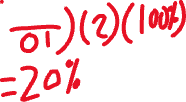 01)(2)(100%)
=20%